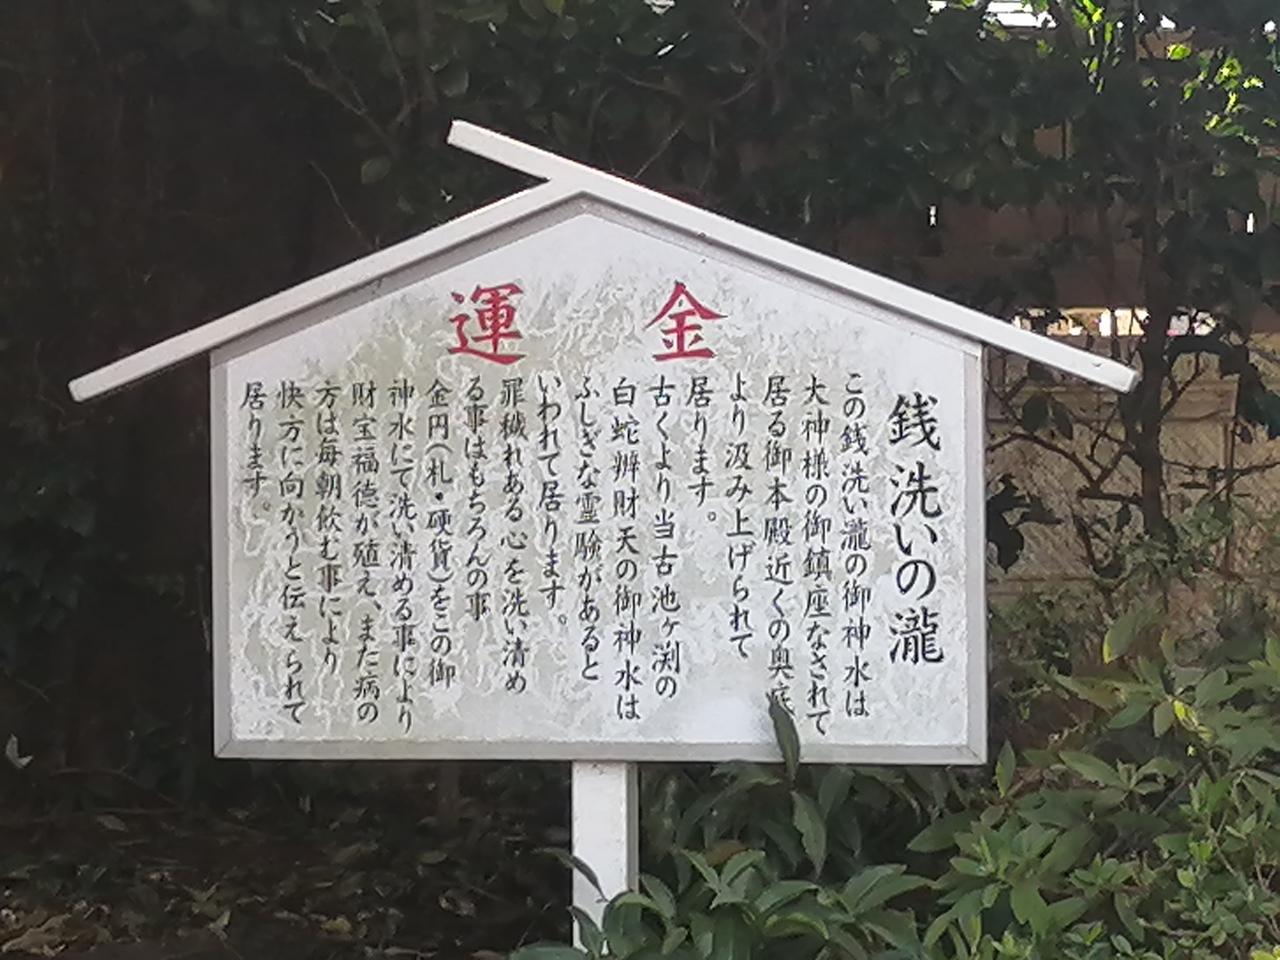 金運
銭洗いの瀧
この銭洗い瀧の御神水は
大神様の御鎮座なされて
居る御本殿近くの奥底
より汲み上げられて
居ります。
古くより当古池ヶ渕の
白蛇辨財天の御神水は
ふしぎな霊験があると
いわれて居ります。
罪穢れある心を洗い清め
る事はもちろんの事
金円(札・硬貨)をこの御
神水にて洗い清める事により
財宝福徳が殖え、また病の
方は毎朝飲む事により
快方に向かうと伝えられて
居ります。